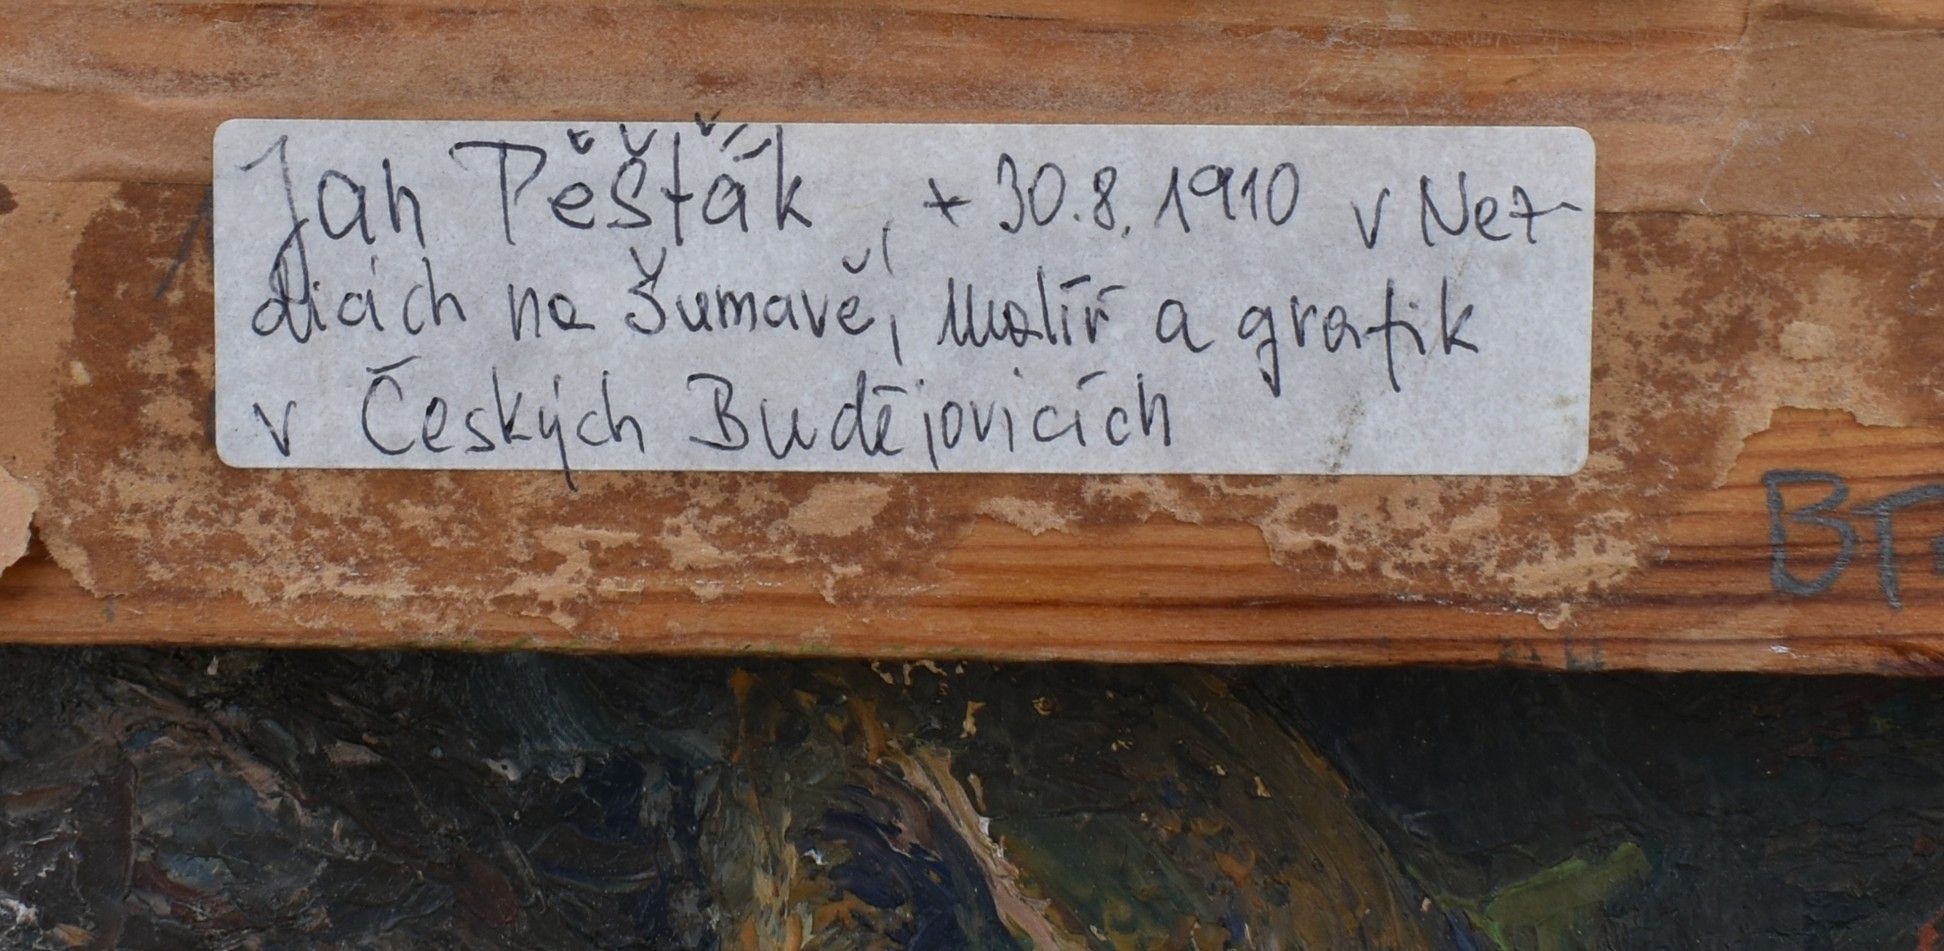 Jan Pěšťák, * 30.8.1910 v Nez-
dicích na Šumavě, malíř a grafik
v Českých Budějovicích